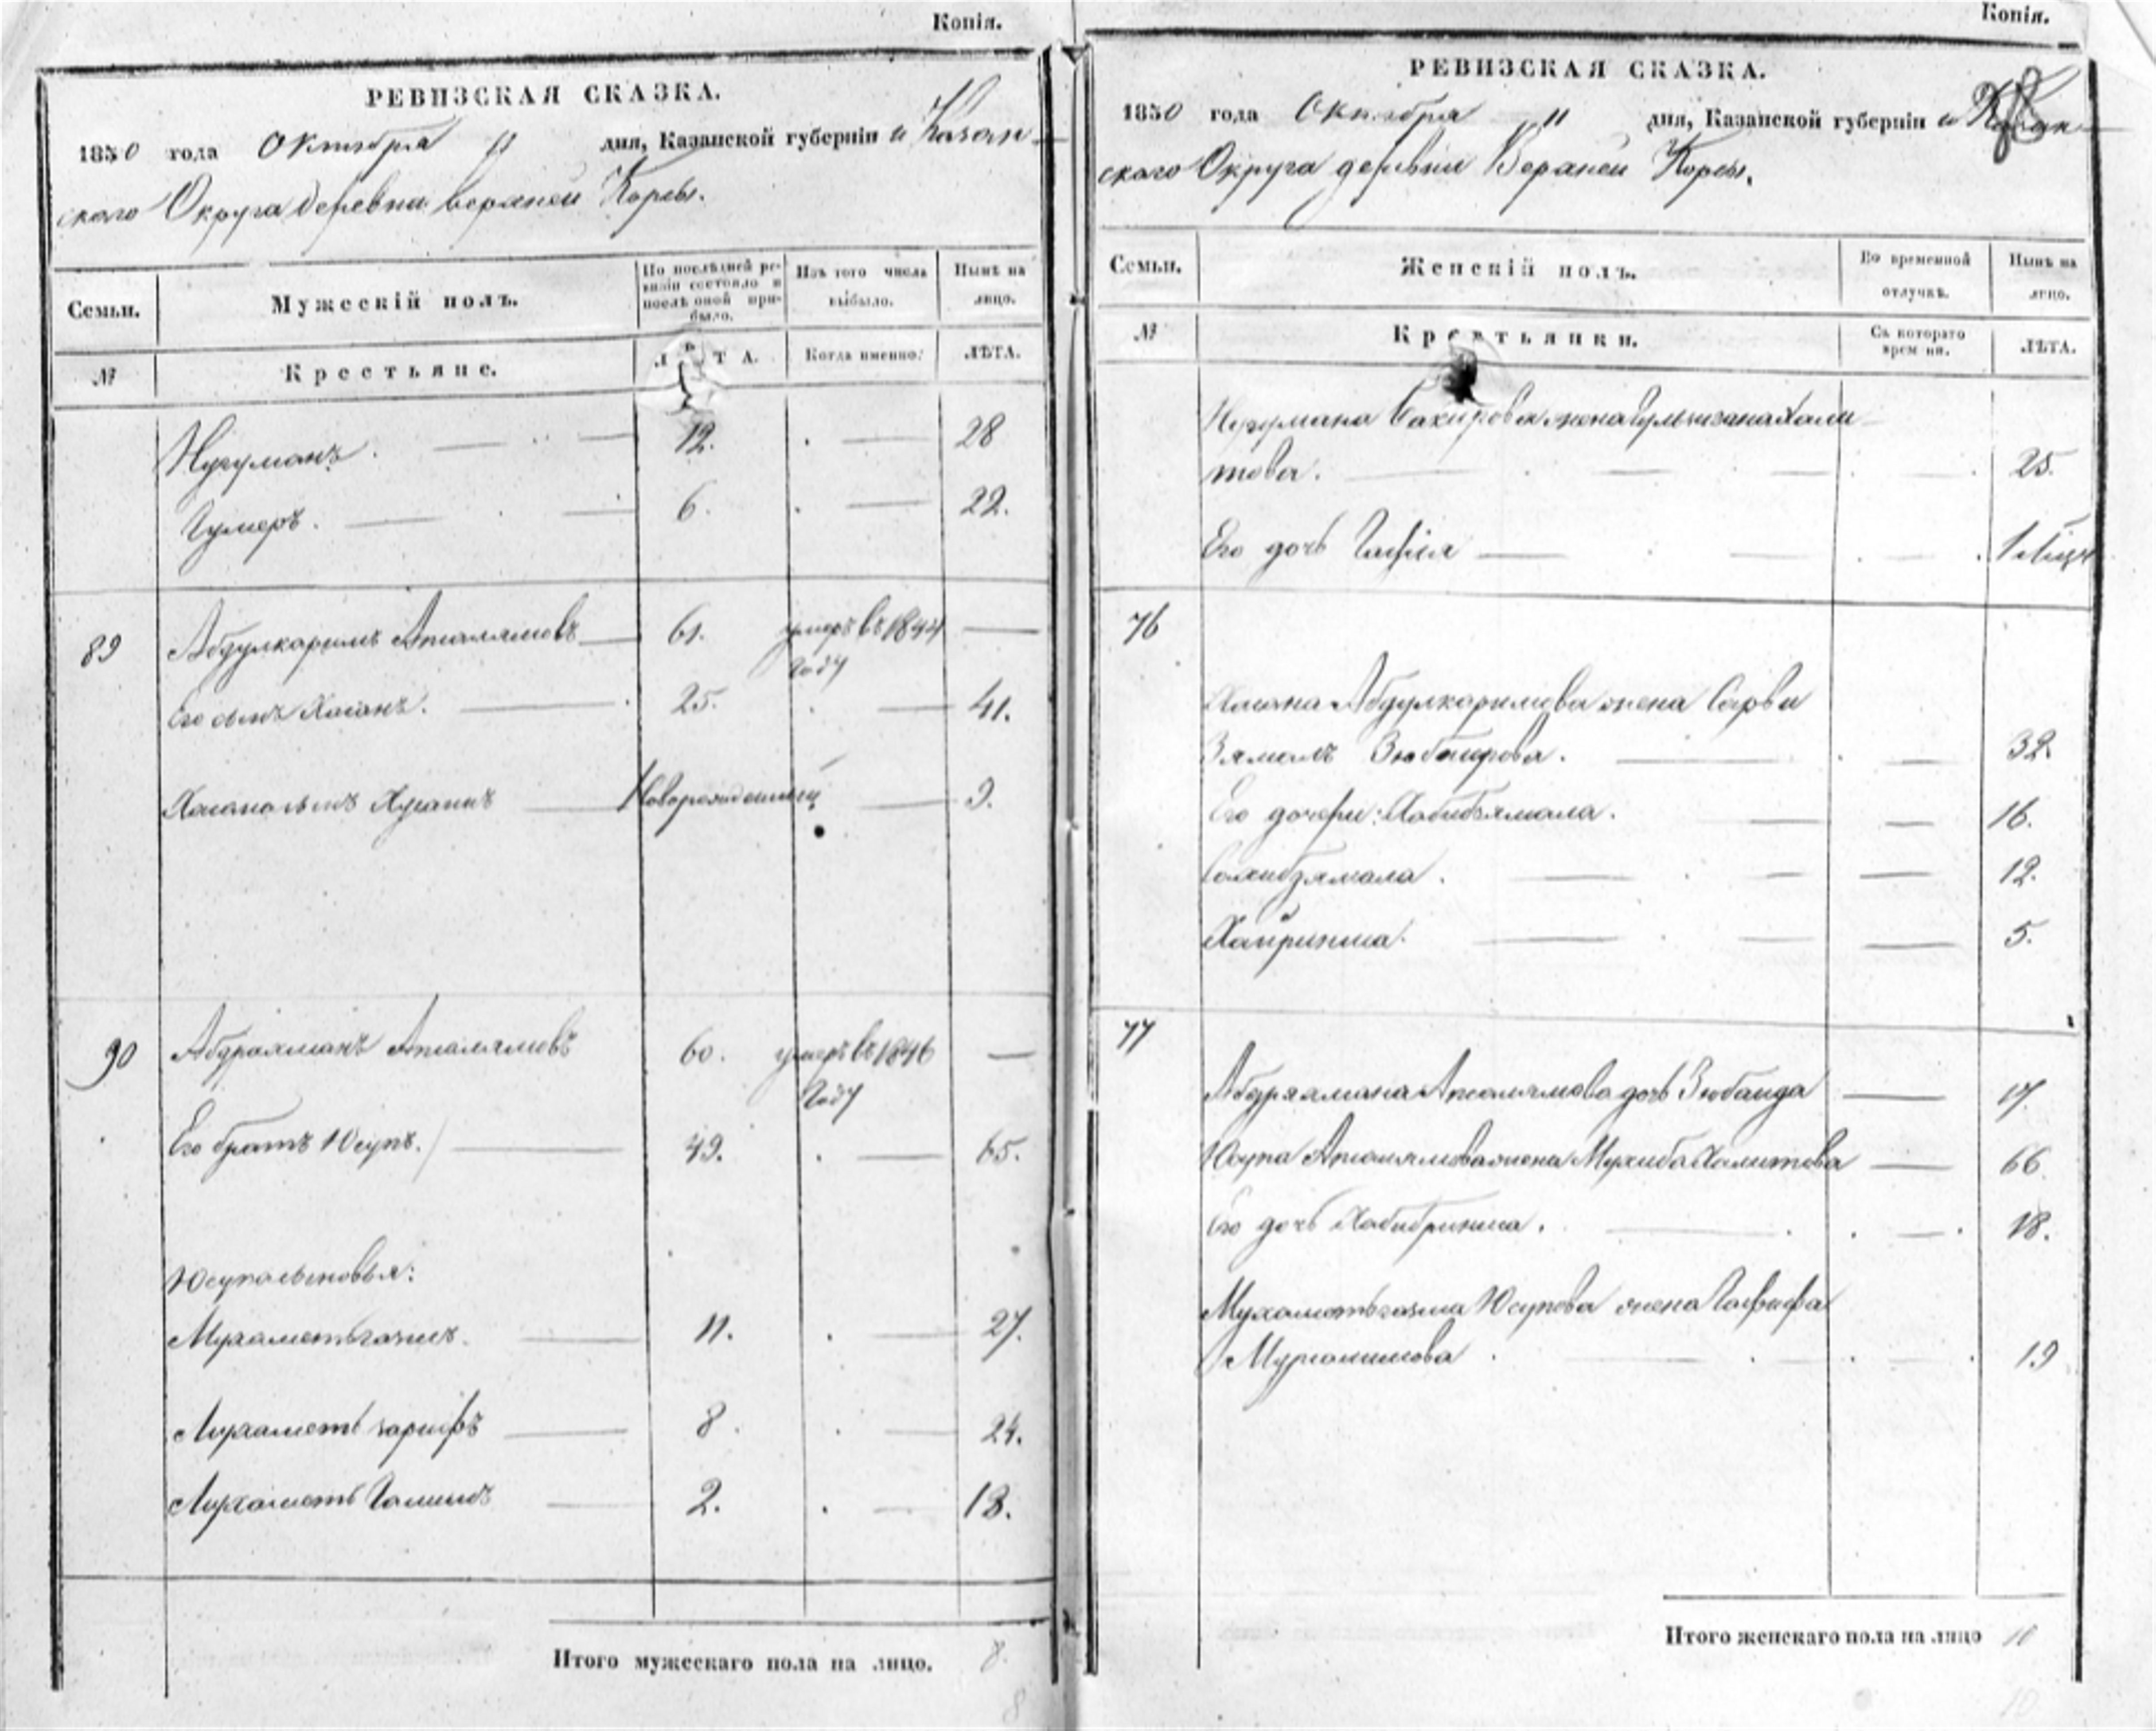 Копія.
РЕВИЗСКАЯ СКАЗКА.
1850 года Октября " дня, Казанской губерніи и Казан-
скаго Округа деревни Верхней Корсы.
Семьи.
Мужескій полъ.
По послѣдней ре-
визіи состояло и
послѣ оной при-
было.
Изъ того числа
выбыло.
Нынѣ на
лицо.
№
Крестьяне.
ЛѢТА.
Когда именно.
ЛѢТА.
Нугуманъ. 12. 28
Гумеръ. 6. 22.
89 Абдулкаримъ Апталямовъ 61. умеръ въ 1844
году
Его сынъ Хасанъ. 25. 41.
Хасана сынъ Хусаинъ Новорожденный 9.
90 Абдрахманъ Апталямовъ 60. умеръ въ 1846
году
Его братъ Юсупъ. 49. 65.
Юсупа сыновья:
Мухаметьгазизъ. 11. 27.
Мухаметь зарифъ 8. 24.
Мухаметь Галимъ 2. 18.
Итого мужескаго пола на лицо. 8.
8
Копія.
РЕВИЗСКАЯ СКАЗКА.
1850 года Октября " дня, Казанской губерніи и Казан-
скаго Округа деревни Верхней Корсы.
Семьи.
Женскій полъ.
Во временной
отлучкѣ.
Нынѣ на
лицо.
№
Крестьянки.
Съ котораго
времени.
ЛѢТА.
Нугумана жена Хали-
това. 25.
Его дочь Гафія 1
76
Хасана Абдулкаримова жена Сарби
Зямалъ Зюбаирова. 32.
Его дочери: Хабибзямала. 16.
Сахибзямала. 12.
Хайриниса. 5.
77
Абдрахмана Апталямова дочь Зюбаида 17.
Юсупа Апталямова жена Мухиба Халитова 66
Его дочь Хабибриниса. 18.
Юсупова жена Гафифа
19
Итого женскаго пола на лицо 10
10